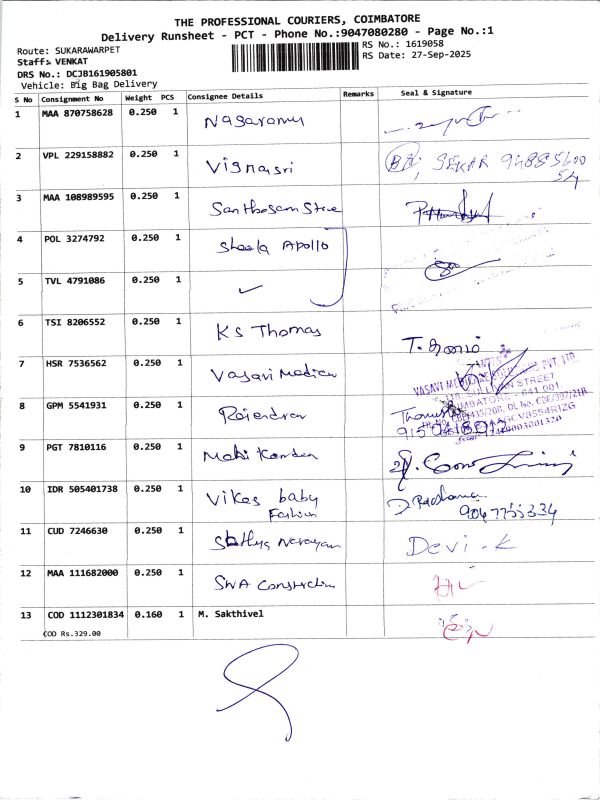 THE PROFESSIONAL COURIERS, COIMBATORE
Delivery Runsheet - PCT - Phone No.:9047080280 - Page No.:1
Route: SUKARAWARPET
RS No.: 1619058
Staff: VENKAT
RS Date: 27-Sep-2025
DRS No.: DCJB161905801
Vehicle: Big Bag Delivery
S No Consignment No Weight PCS Consignee Details Remarks Seal & Signature
1 MAA 870758628 0.250 1 Nagaramu
2 VPL 229158882 0.250 1 Vignasri SEKAR 94885600
54
3 MAA 108989595 0.250 1 Santhosam Stre
4 POL 3274792 0.250 1 Sheela Apollo
5 TVL 4791086 0.250 1 ✓
6 TSI 8206552 0.250 1 KS Thomas
7 HSR 7536562 0.250 1 Vasavi Medicen
VASAVI PVT LTD
STREET
8 GPM 5541931 0.250 1 Rajendran
9 PGT 7810116 0.250 1 Mahi Kanden
10 IDR 505401738 0.250 1 Vikas baby
Fashion
D Radhama
9047755334
11 CUD 7246630 0.250 1 Sathya Narayam Devi.K
12 MAA 111682000 0.250 1 SNA Constrction
13 COD 1112301834 0.160 1 M. Sakthivel
COD Rs.329.00